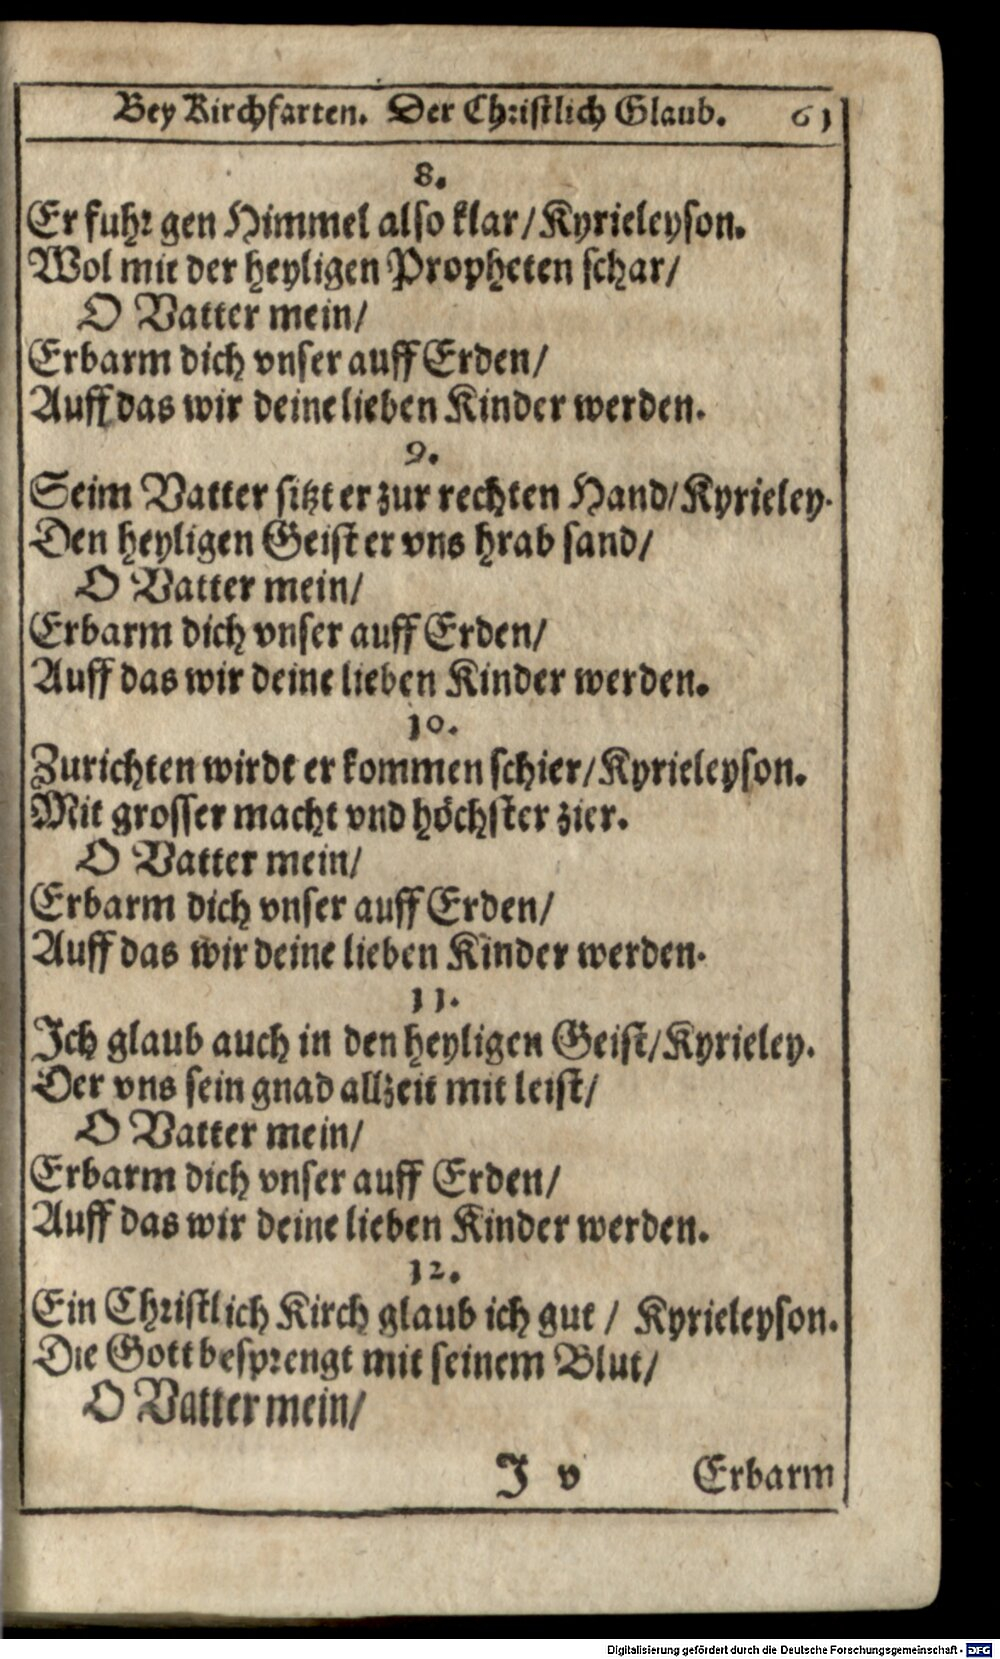 Bey Kirchfarten. Der Christlich Glaub. 61
8.
Er fuhr gen Himmel also klar/Kyrieleyson.
Wol mit der heyligen Propheten schar/
O Vatter mein/
Erbarm dich vnser auff Erden/
Auff das wir deine lieben Kinder werden.
9.
Seim Vatter sitzt er zur rechten Hand/Kyrieley.
Den heyligen Geist er vns hrab sand/
O Vatter mein/
Erbarm dich vnser auff Erden/
Auff das wir deine lieben Kinder werden.
10.
Zurichten wirdt er kommen schier/Kyrieleyson.
Mit grosser macht vnd höchster zier.
O Vatter mein/
Erbarm dich vnser auff Erden/
Auff das wir deine lieben Kinder werden.
11.
Ich glaub auch in den heyligen Geist/Kyrieley.
Der vns sein gnad allzeit mit leist/
O Vatter mein/
Erbarm dich vnser auff Erden/
Auff das wir deine lieben Kinder werden.
12.
Ein Christlich Kirch glaub ich gut / Kyrieleyson.
Die Gott besprengt mit seinem Blut/
O Vatter mein/
I v Erbarm
Digitalisierung gefördert durch die Deutsche Forschungsgemeinschaft - DFG